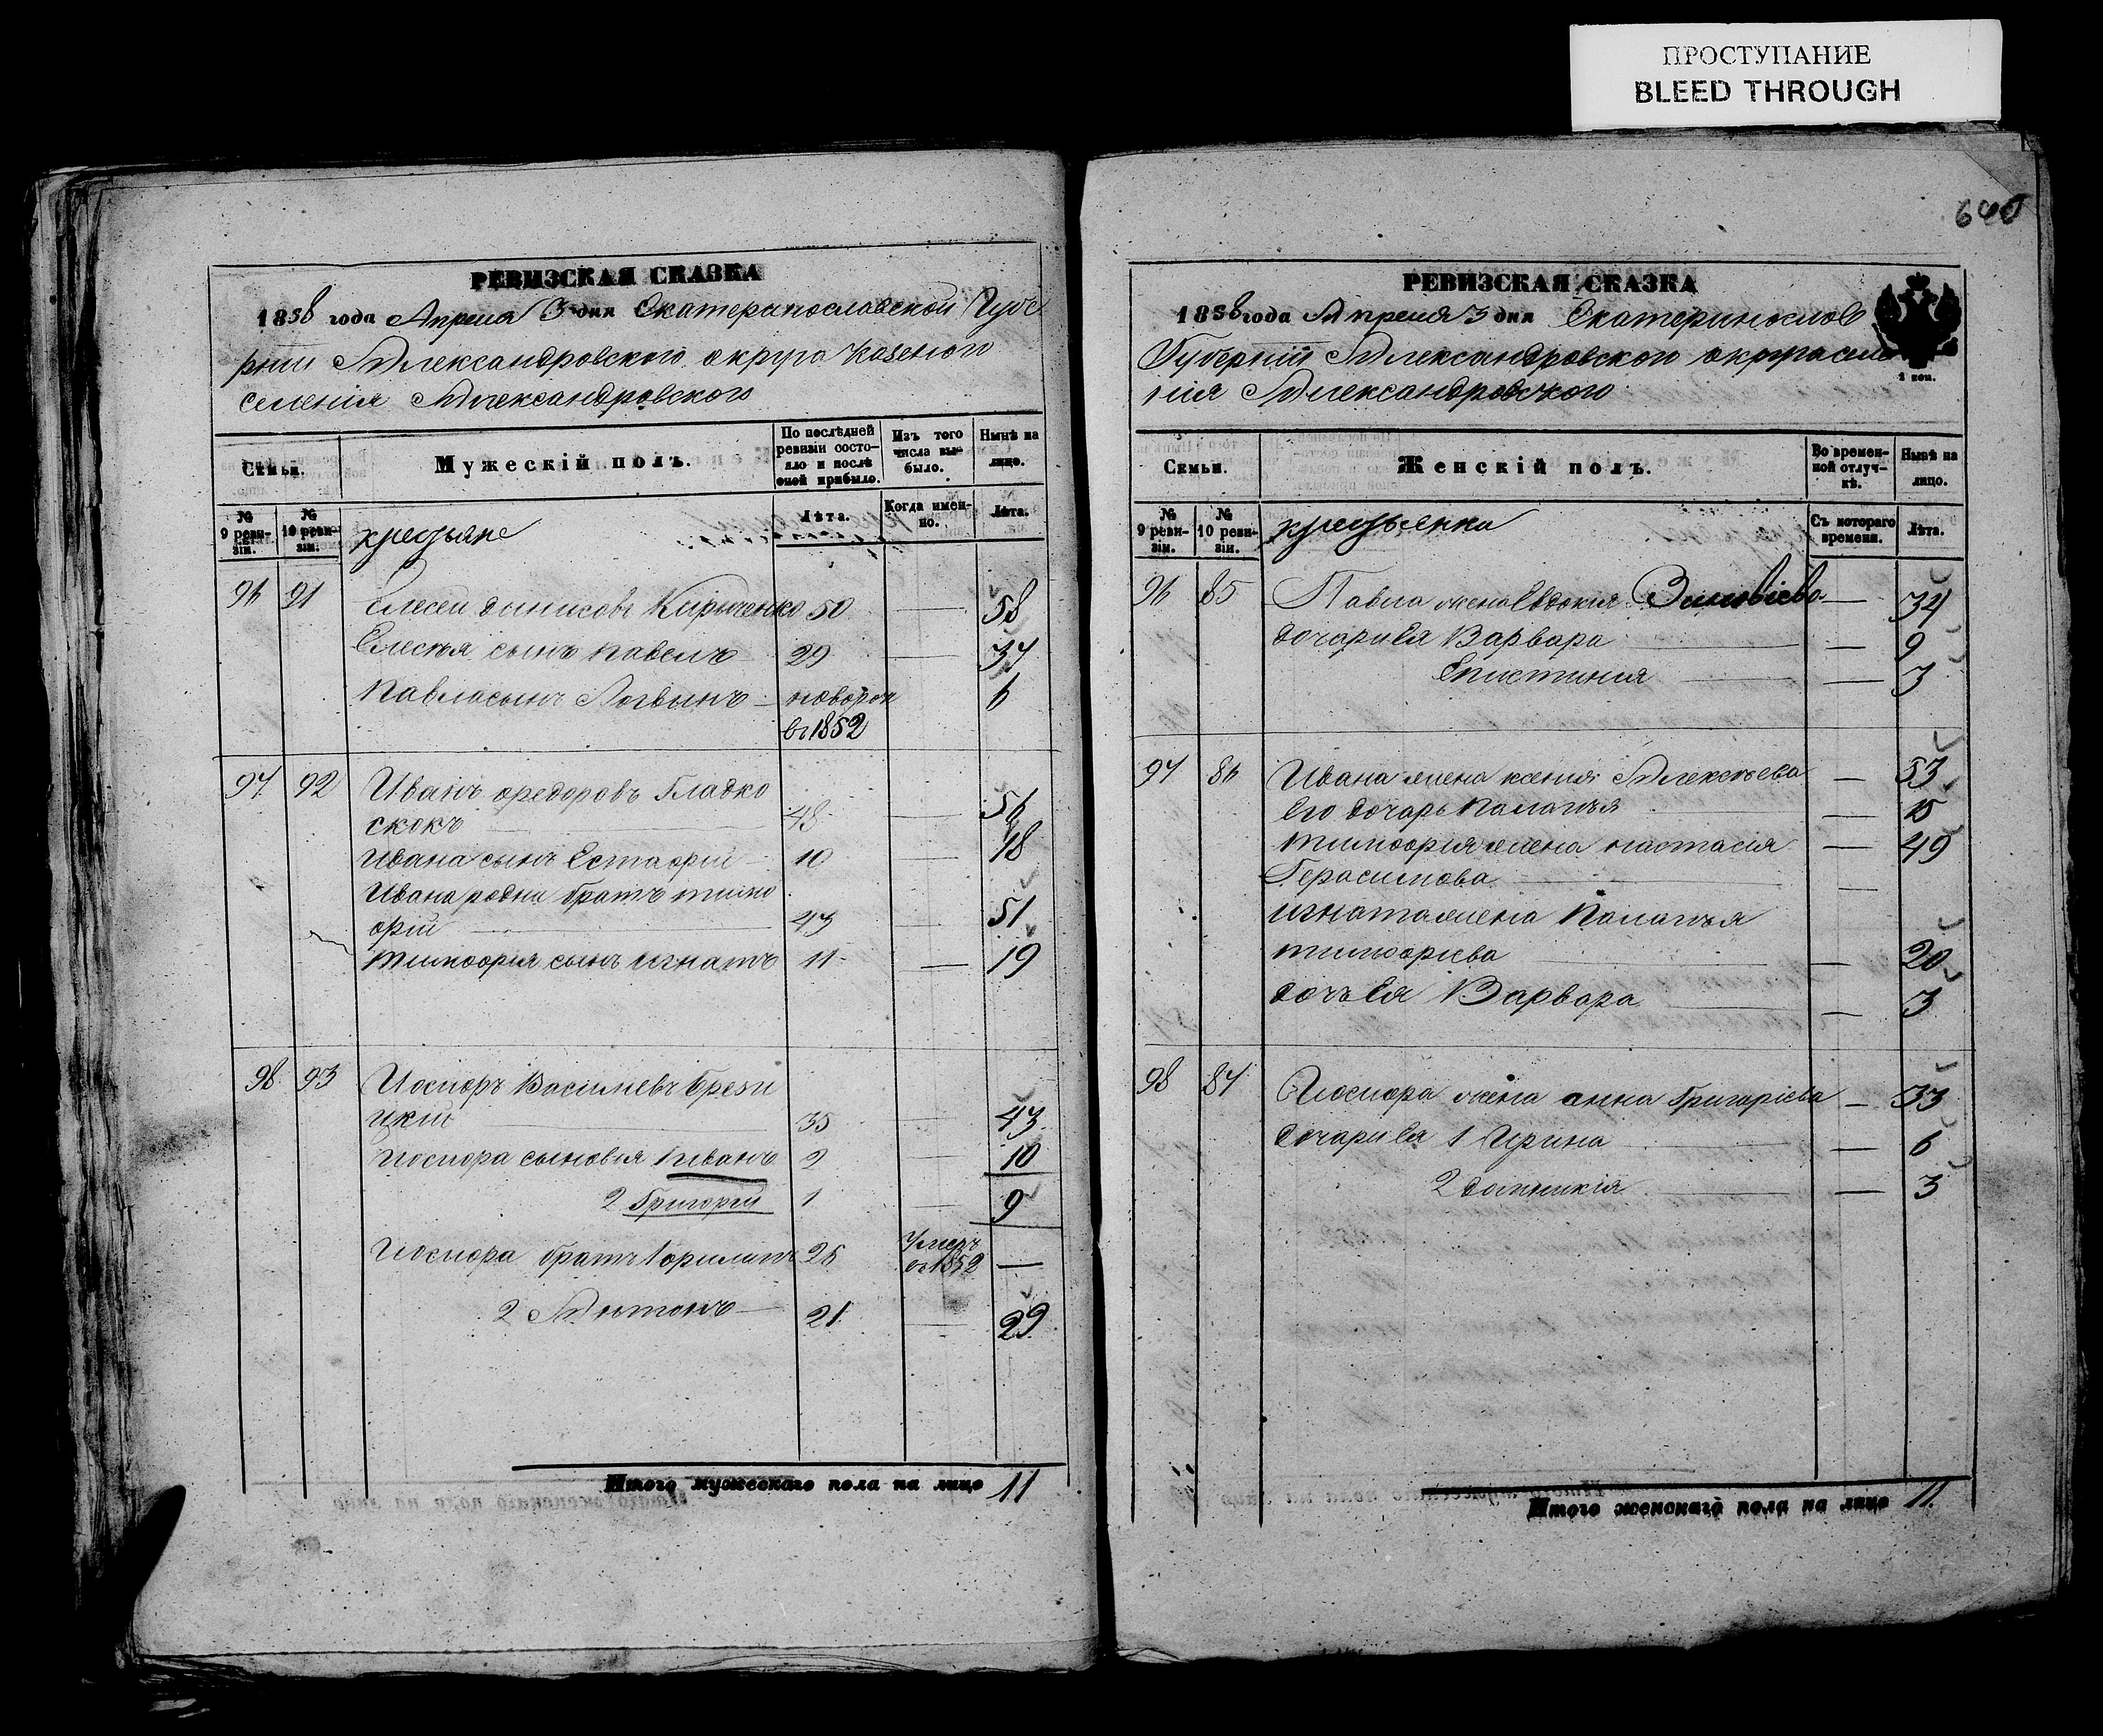 ПРОСТУПАНИЕ
BLEED THROUGH
РЕВИЗСКАЯ СКАЗКА
1858 года Апреля 3 дня Екатеринославской Губе
рнии Александровского округа казеного
селения Александровского
Семьи.
Мужескій полъ.
По послѣдней ревизіи состояло и послѣ оной прибыло.
Изъ того числа выбыло.
Нынѣ на лицо.
№ 9 ревизіи.
№ 10 ревизіи.
крестьяне
Лѣта.
Когда именно.
Лѣта.
96 91 Елесей Дынисовъ Кириченко 50 — 58
Елесея сынъ Павелъ 29 — 37
Павла сынъ Логвынъ — новорож — 6
въ 1852
97 92 Иванъ Федоровъ Гладко
скокъ 48 — 56
Ивана сынъ Естафий 10 — 18
Ивана родни братъ тимо
фий 43 — 51
Тимофия сынъ игнатъ 11 — 19
98 93 Иосифъ Василиевъ Брези
цкий 35 — 43
Иосифа сыновия 1 иванъ 2 — 10
2 Григорий 1 — 9
Иосифа братъ 1 26 Умеръ въ 1852 —
2 Антонъ — 21 — 29
Итого мужескаго пола на лицо 11
640
РЕВИЗСКАЯ СКАЗКА
1858 года Апреля 3 дня Екатеринослов
Губерний Александровского округа селе
ния Александровского
1 коп.
Семьи.
Женскій полъ.
Во временной отлучкѣ.
Нынѣ на лицо.
№ 9 ревизіи.
№ 10 ревизіи.
крестьянки
Съ котораго времени.
Лѣта.
96 85 Павла жена Евдокия Зиновіева — 34
дочари Ея Варвара — 9
Епистиния — 3
97 86 Ивана жена ксения Алексеева — 53
Его дочарь Палагъя — 15
тимофия жена настасия — 49
Герасимова —
игната жена Палагъя
тимофиева — 20
дочъ Ея Варвара — 3
98 87 Иосифа жена анна Григориева — 33
дочари Ея 1 Ирина — 6
2 домникия — 3
Итого женскаго пола на лицо 11.